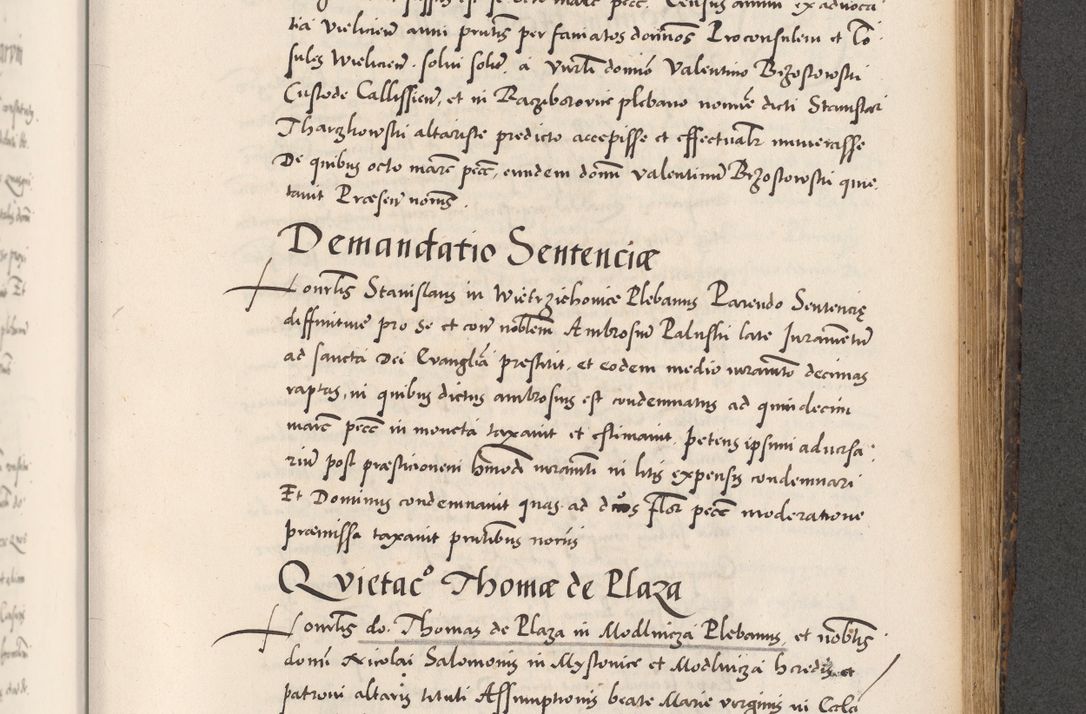 tia Vieliciens anni prntis per famatos dominos Proconsulem et Co
sules Wieliciens. solui solit. a Vnrli domino Valentino Brzostowski
Custode Callissien, et in Raczibororvice plebano nomine dicti Stanislai
Tharzkowski altariste predicto accepisse et effectualr numerasse
De quibus octo marc pecc, eundem domn valentinu Brzostowski quie
tauit Præsen nons.
Demandatio Sentenciæ
Honrlis Stanislaus in Wietrzichonice Plebanus Parendo Sentencię
diffinitiue pro se et con noblem Ambrosiu Paluski late Juramentu
ad sancta Dei Evanglia prestitit. et eodem medio iuramto decimas
raptas, in quibus dictus ambrosius est condemnatus ad quindecim
marc pecc in moneta taxauit et estimauit. petens ipsum aduersa
riu post præsticionem hmodi iuramti in litis expensis condemnari
Et Dominus condemnauit quas ad duos Flor pecc moderatione
præmissa taxauit prntibus noriis
Qvietaco Thomæ de Plaza
Honrlis do. Thomas de Plaza in Modlnicza Plebanus, et nobilis
domi Nicolai Salomonis in Mystonice et Modlnicza heredis et
patroni altaris tituli Assumptionis beate Marie virginis in Eccla